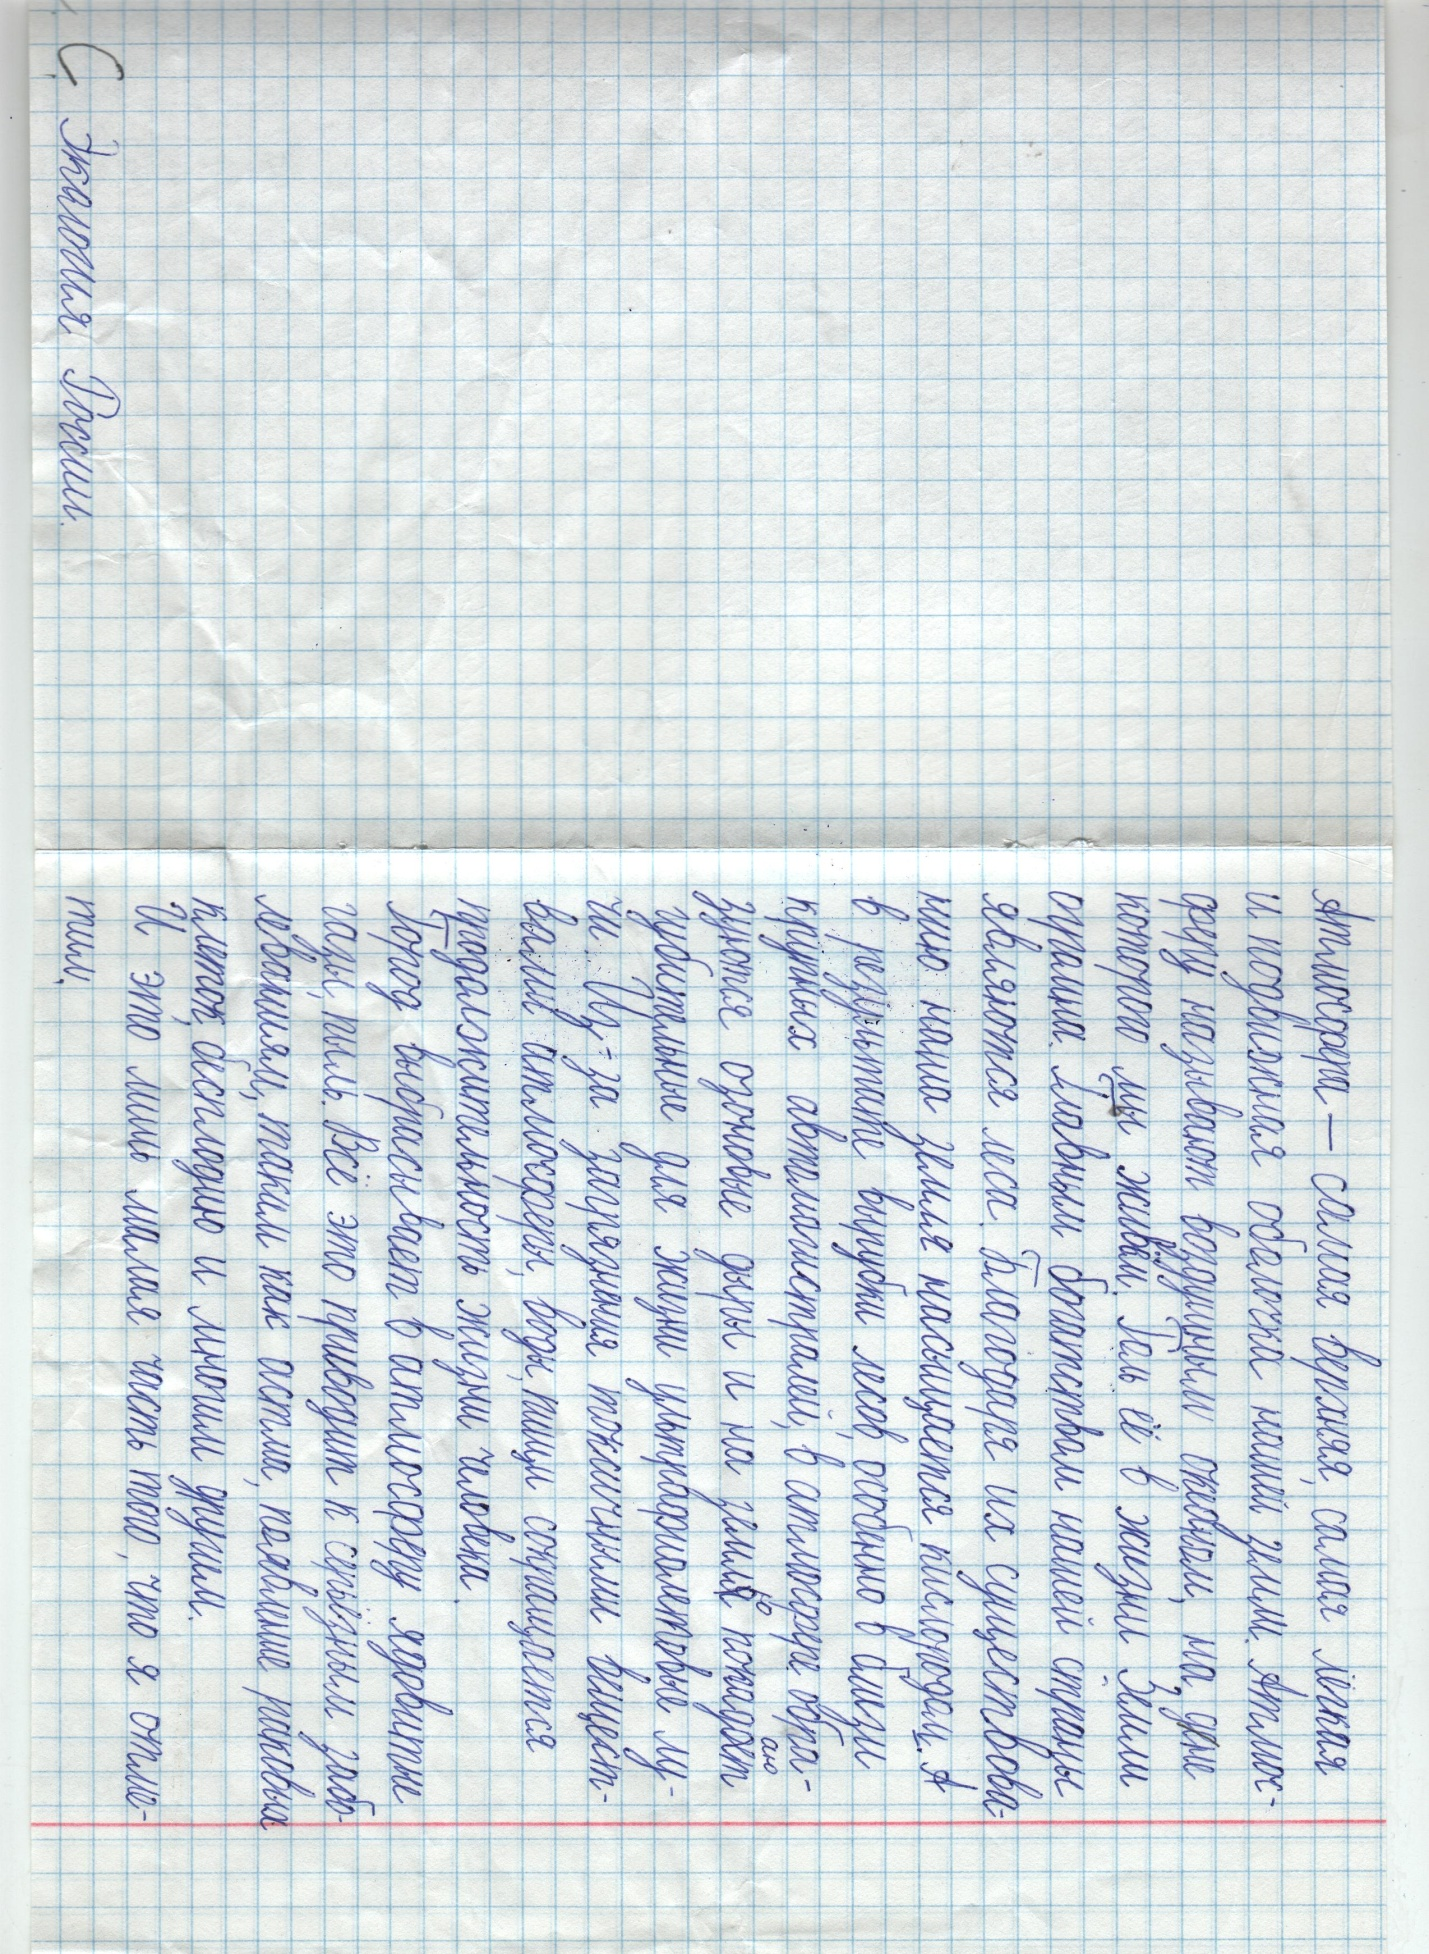 С Экология России.
Атмосфера — самая верхняя, самая лёгкая
и подвижная оболочка нашей земли. Атмос-
феру называют воздушным океаном, на дне
которого мы живём. Роль её в жизни Земли
огромна. Главным богатством нашей страны
являются леса. Благодаря их существова-
нию наша земля насыщается кислородом. А
в результате вырубки лесов, особенно в близи
крупных автомагистралей, в атмосфере обра-
зуются озоновые дыры и на землю попадают
губительные для жизни ультрафиолетовые лу-
чи. Из-за загрязнения токсичными вещест-
вами атмосферы, воды, пищи сокращается
продолжительность жизни человека.
Город выбрасывает в атмосферу ядовитые
газы, пыль. Всё это приводит к серьёзным забо-
леваниям, таким как астма, появление раковых
клеток, бесплодию и многим другим.
И это лишь малая часть того, что я отме-
тил.